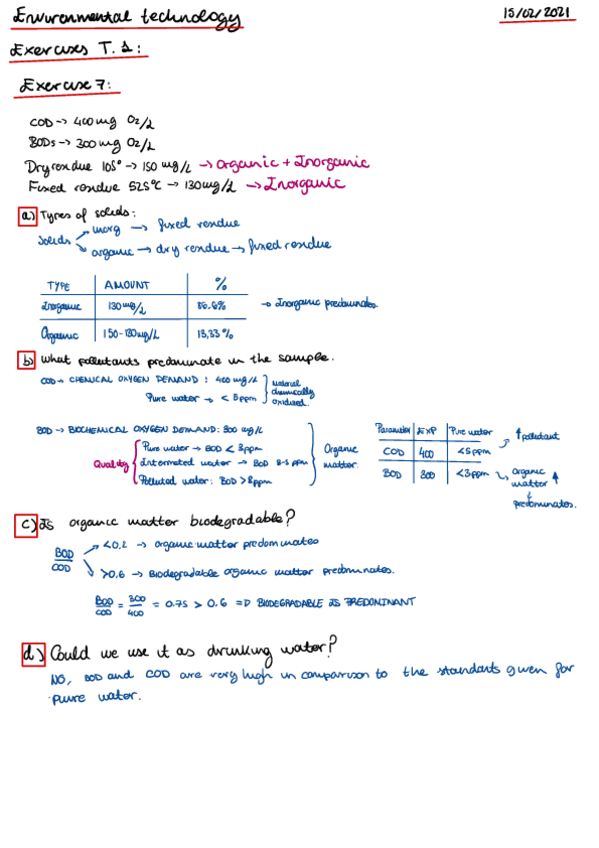 Environmental technology 15/02/2021
Exercises T.1:
Exercise 7:
COD -> 400 mg O2/L
BOD5 -> 300 mg O2/L
Dry residue 105° -> 150 mg/L -> Organic + Inorganic
Fixed residue 525°C -> 130 mg/L -> Inorganic
a) Types of solids:
Solids
inorg -> fixed residue
organic -> dry residue -> fixed residue
TYPE AMOUNT %
Inorganic 130 mg/L 86.6% -> Inorganic predominates
Organic 150-130 mg/L 13,33%
b) What pollutants predominate in the sample.
COD -> CHEMICAL OXYGEN DEMAND: 400 mg/L
Pure water -> < 5ppm
material chemically oxidized.
BOD -> BIOCHEMICAL OXYGEN DEMAND: 300 mg/L
Quality
Pure water -> BOD < 3ppm
Intermated water -> BOD 3-5 ppm
Polluted water: BOD > 8ppm
Organic matter.
Parameter EXP Pure water
COD 400 <5ppm -> ↑pollutant
BOD 300 <3ppm -> Organic matter ↑
↓
predominates.
c) Is organic matter biodegradable?
BOD/COD
<0.2 -> organic matter predominates
>0.6 -> Biodegradable organic matter predominates.
BOD/COD = 300/400 = 0.75 > 0.6 => BIODEGRADABLE IS PREDOMINANT
d) Could we use it as drinking water?
NO, BOD and COD are very high in comparison to the standarts given for
pure water.